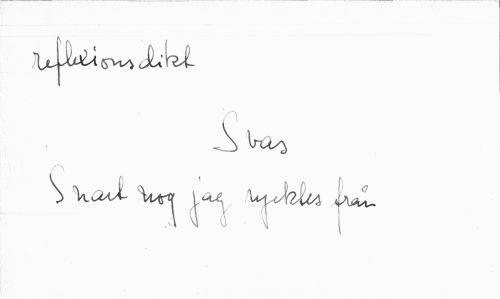 reflexionsdikt
Svas
Snart nog jag rycktes från